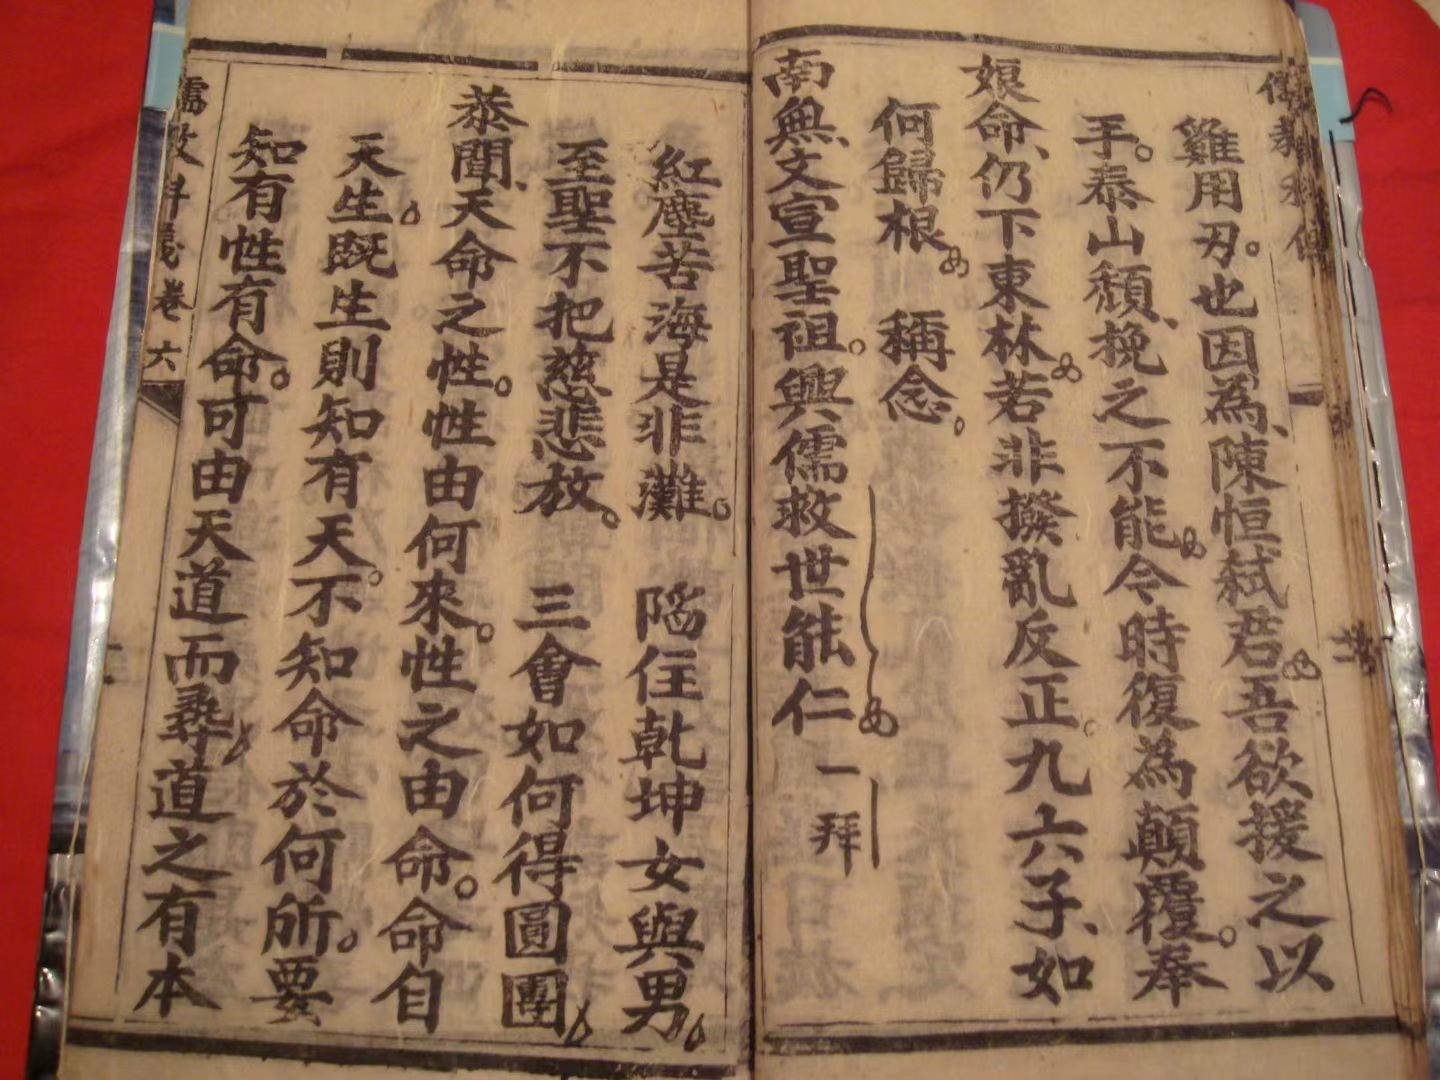 雞用刃。也因為、陳恒弑君。吾欲援之以
手。泰山頹、挽之不能。令時復為顛覆。奉
娘命、仍下東林。若非撥亂反正。九六子、如
何歸根。 稱念。
南無、文宣聖祖。興儒救世能仁 一拜
紅塵苦海是非灘。 陷住乾坤女與男。
至聖不把慈悲放。 三會如何得圓團
恭聞、天命之性。性由何來。性之由命。命自
天生。既生則知有天。不知命於何所。要
知有性有命。可由天道而尋道之有本
儒教科儀 卷六